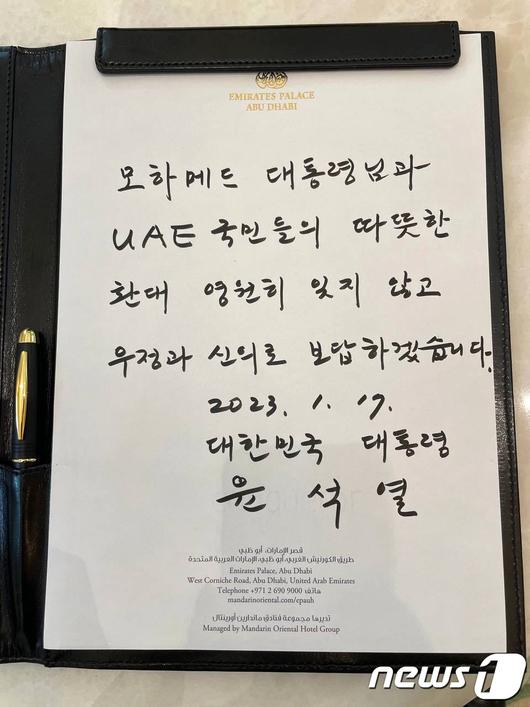 EMIRATES PALACE
ABU DHABI
모하메드 대통령님과
UAE 국민들의 따뜻한
환대 영원히 잊지 않고
우정과 신의로 보답하겠습니다.
2023. 1. 17.
대한민국 대통령
윤 석 열
قصر الإمارات، أبوظبي
طريق الكورنيش الغربي، أبوظبي، الإمارات العربية المتحدة
Emirates Palace, Abu Dhabi
West Corniche Road, Abu Dhabi, United Arab Emirates
Telephone +971 2 690 9000 هاتف
mandarinoriental.com/epauh
تديرها مجموعة فنادق ماندارين أورينتال
Managed by Mandarin Oriental Hotel Group
news1